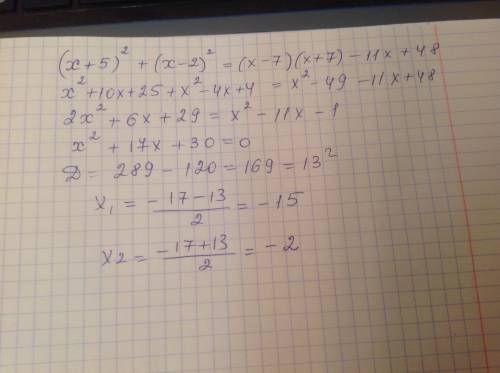 (x+5)² + (x-2)² = (x-7)(x+7) - 11x + 48
x² + 10x + 25 + x² - 4x + 4 = x² - 49 - 11x + 48
2x² + 6x + 29 = x² - 11x - 1
x² + 17x + 30 = 0
D = 289 - 120 = 169 = 13²
x₁ = (-17-13)/2 = -15
x2 = (-17+13)/2 = -2